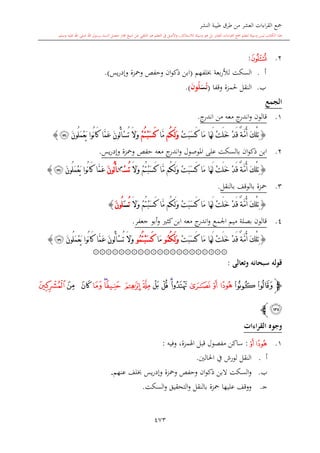 جمع القراءات العشر من طرق طيبة النشر
٢. ﴿تُسۡـَٔلُونَ﴾:
أ . السكت للأربعة بخلفهم (ابن ذكوان وحفص وحمزة وإدريس).
ب. النقل لحمزة وقفا (تُسَلُونَ).
الجمع
١. قالون واندرج معه من اندرج.
﴿ تِلۡكَ أُمَّةٌ قَدۡ خَلَتۡ لَهَا مَا كَسَبَتۡ وَلَكُم مَّا كَسَبۡتُمۡ وَلَا تُسۡـَٔلُونَ عَمَّا كَانُواْ يَعۡمَلُونَ ﴾
٢. ابن ذكوان بالسكت على الموصول واندرج معه حفص وحمزة وإدريس.
﴿ تِلۡكَ أُمَّةٌ قَدۡ خَلَتۡ لَهَا مَا كَسَبَتۡ وَلَكُم مَّا كَسَبۡتُمۡ وَلَا تُسۡـَٔلُونَ عَمَّا كَانُواْ يَعۡمَلُونَ ﴾
٣. حمزة بالوقف بالنقل.
﴿ تِلۡكَ أُمَّةٌ قَدۡ خَلَتۡ لَهَا مَا كَسَبَتۡ وَلَكُم مَّا كَسَبۡتُمۡ وَلَا تُسَلُونَ ﴾
٤. قالون بصلة ميم الجمع واندرج معه ابن كثير وأبو جعفر.
﴿ تِلۡكَ أُمَّةٌ قَدۡ خَلَتۡ لَهَا مَا كَسَبَتۡ وَلَكُمُو مَّا كَسَبۡتُمُو وَلَا تُسۡـَٔلُونَ عَمَّا كَانُواْ يَعۡمَلُونَ ﴾
قوله سبحانه وتعالى :
﴿ وَقَالُواْ كُونُواْ هُودًا أَوۡ نَصَٰرَىٰ تَهۡتَدُواْۗ قُلۡ بَلۡ مِلَّةَ إِبۡرَٰهِـۧمَ حَنِيفٗاۖ وَمَا كَانَ مِنَ ٱلۡمُشۡرِكِينَ
﴿١٣٥﴾
وجوه القراءات
١. هُودًا أَوۡ : ساكن مفصول قبل الهمزة، وفيه :
أ . النقل لورش في الحالين.
ب. والسكت لابن ذكوان وحفص وحمزة وإدريس بخلف عنهم.
جـ. ووقف عليها حمزة بالنقل والتحقيق والسكت.
٤٧٣